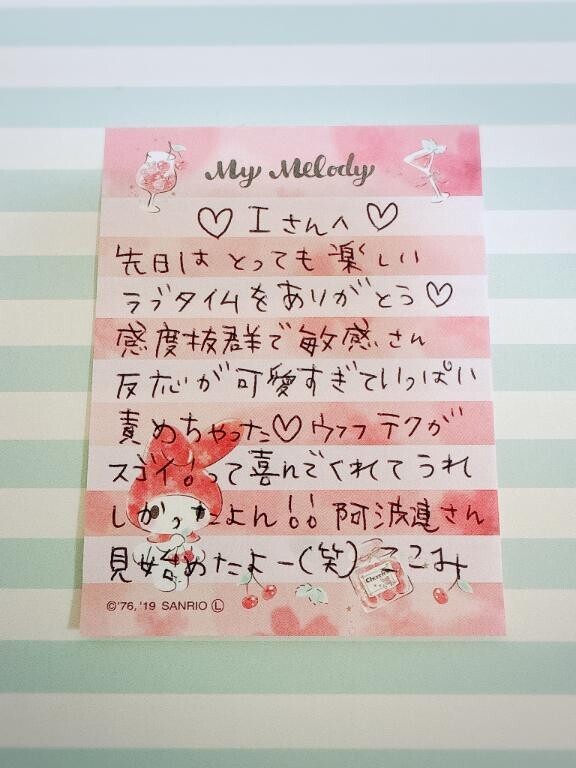 My Melody
♡ Iさんへ ♡
先日は とっても 楽しい
ラブタイムをありがとう♡
感度抜群で敏感さん
反応が可愛すぎていっぱい
責めちゃった♡ウフフ テクが
スゴイ!って喜んでくれてうれ
しかったよん!! 阿波連さん
見始めたよー(笑) ここみ
Cherry
©'76, '19 SANRIO Ⓛ